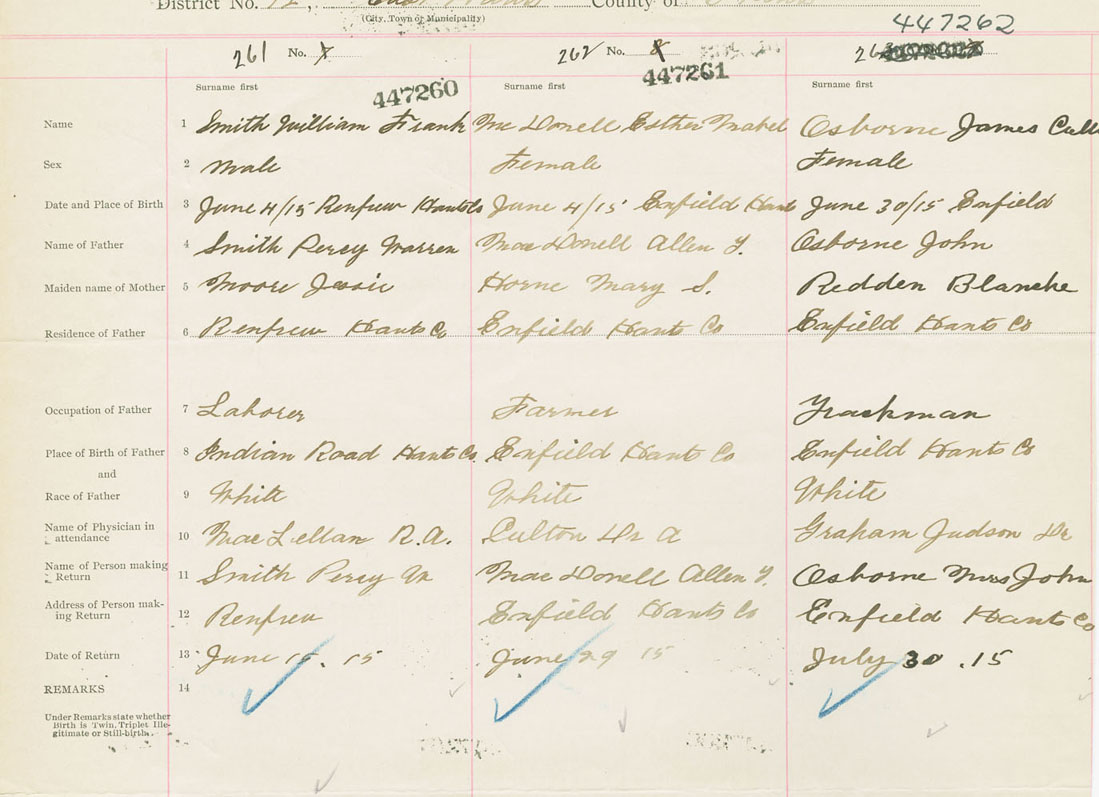 District No. 12, East Hants County of Hants
(City, Town or Municipality)
447262
261 No. 7 262 No. 8
447260 447261
Surname first Surname first Surname first
Name 1 Smith William Frank Mc Donell Esther Mabel Osborne James
Sex 2 Male Female Female
Date and Place of Birth 3 June 4/15 Renfrew Hants Co June 4/15 Enfield Hants June 30/15 Enfield
Name of Father 4 Smith Percy Warren Mac Donell Allen Y. Osborne John
Maiden name of Mother 5 Moore Jessie Horne Mary S. Redden Blanche
Residence of Father 6 Renfrew Hants Co Enfield Hants Co Enfield Hants Co
Occupation of Father 7 Laborer Farmer Trackman
Place of Birth of Father 8 Indian Road Hants Co. Enfield Hants Co Enfield Hants Co
and
Race of Father 9 White White White
Name of Physician in
attendance 10 Mac Lellan R.A. Culton Dr A Graham Judson Dr
Name of Person making
Return 11 Smith Percy Wm Mac Donell Allen Y. Osborne Mrs John
Address of Person mak-
ing Return 12 Renfrew Enfield Hants Co Enfield Hants Co
Date of Return 13 June 15. 15 June 29 15 July 30 .15
REMARKS 14
Under Remarks state whether
Birth is Twin, Triplet Ille-
gitimate or Still-birth.